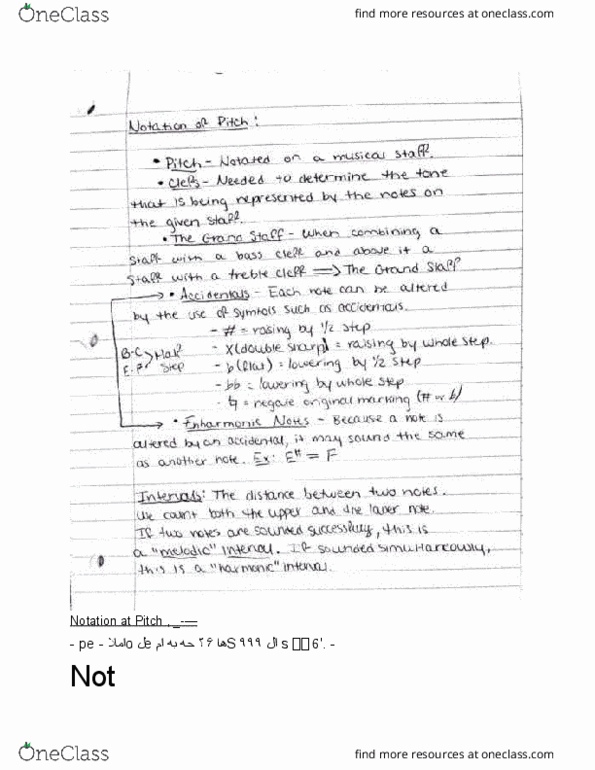 OneClass
find more resources at oneclass.com
Notation of Pitch:
• Pitch - Notated on a musical staff.
• Clefs - Needed to determine the tone
that is being represented by the notes on
the given staff.
• The Grand Staff - when combining a
staff with a bass cleff and above it a
staff with a treble cleff ⟹ The Grand Staff
• Accidentals - Each note can be altered
by the use of symbols such as accidentals.
- # = rasing by 1/2 step
- X (double sharp) = raising by whole step.
B-C > Half
E-F Step
- b (flat) = lowering by 1/2 step
- bb = lowering by whole step
- ♮ = negate original marking (# or b)
• Enharmonic Notes - Because a note is
altered by an accidental, it may sound the same
as another note. Ex: E# = F
Intervals: The distance between two notes.
We count both the upper and the lower note.
If two notes are sounded successivly, this is
a "melodic" interval. If sounded simultaneously,
this is a "harmonic" interval.
Notation at Pitch . _-—
- pe -
Not
OneClass
find more resources at oneclass.com